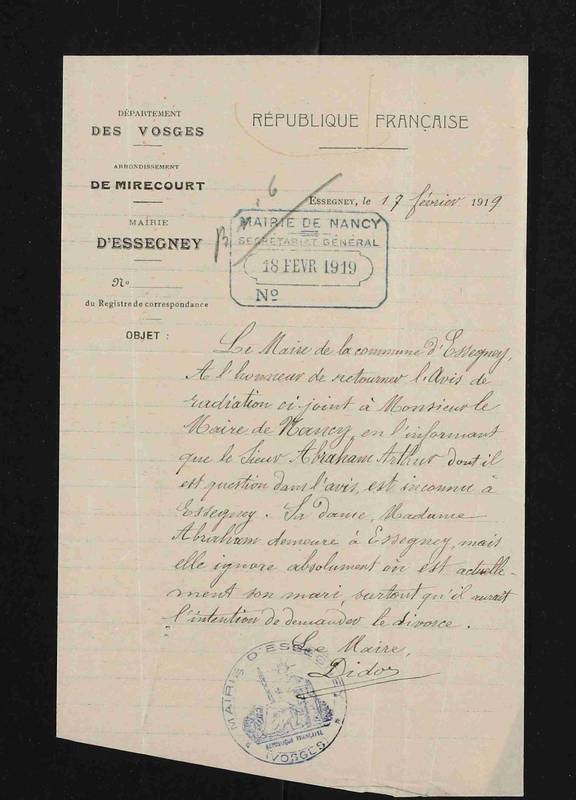 DÉPARTEMENT
DES VOSGES
ARRONDISSEMENT
DE MIRECOURT
MAIRIE
D'ESSEGNEY
No
du Registre de correspondance
OBJET :
RÉPUBLIQUE FRANÇAISE
6
ESSEGNEY, le 17 février 1919
MAIRIE DE NANCY
SECRÉTARIAT GÉNÉRAL
18 FEVR 1919
No
Le Maire de la commune d'Essegney,
A l'honneur de retourner l'Avis de
radiation ci-joint à Monsieur le
Maire de Nancy, en l'informant
que le Sieur Abraham Arthur dont il
est question dans l'avis, est inconnu à
Essegney. Sa dame, Madame
Abraham demeure à Essegney, mais
elle ignore absolument où est actuelle-
ment son mari, surtout qu'il aurait
l'intention de demander le divorce.
Le Maire,
Didot
MAIRIE D'ESSEGNEY
RÉPUBLIQUE FRANÇAISE
(VOSGES)